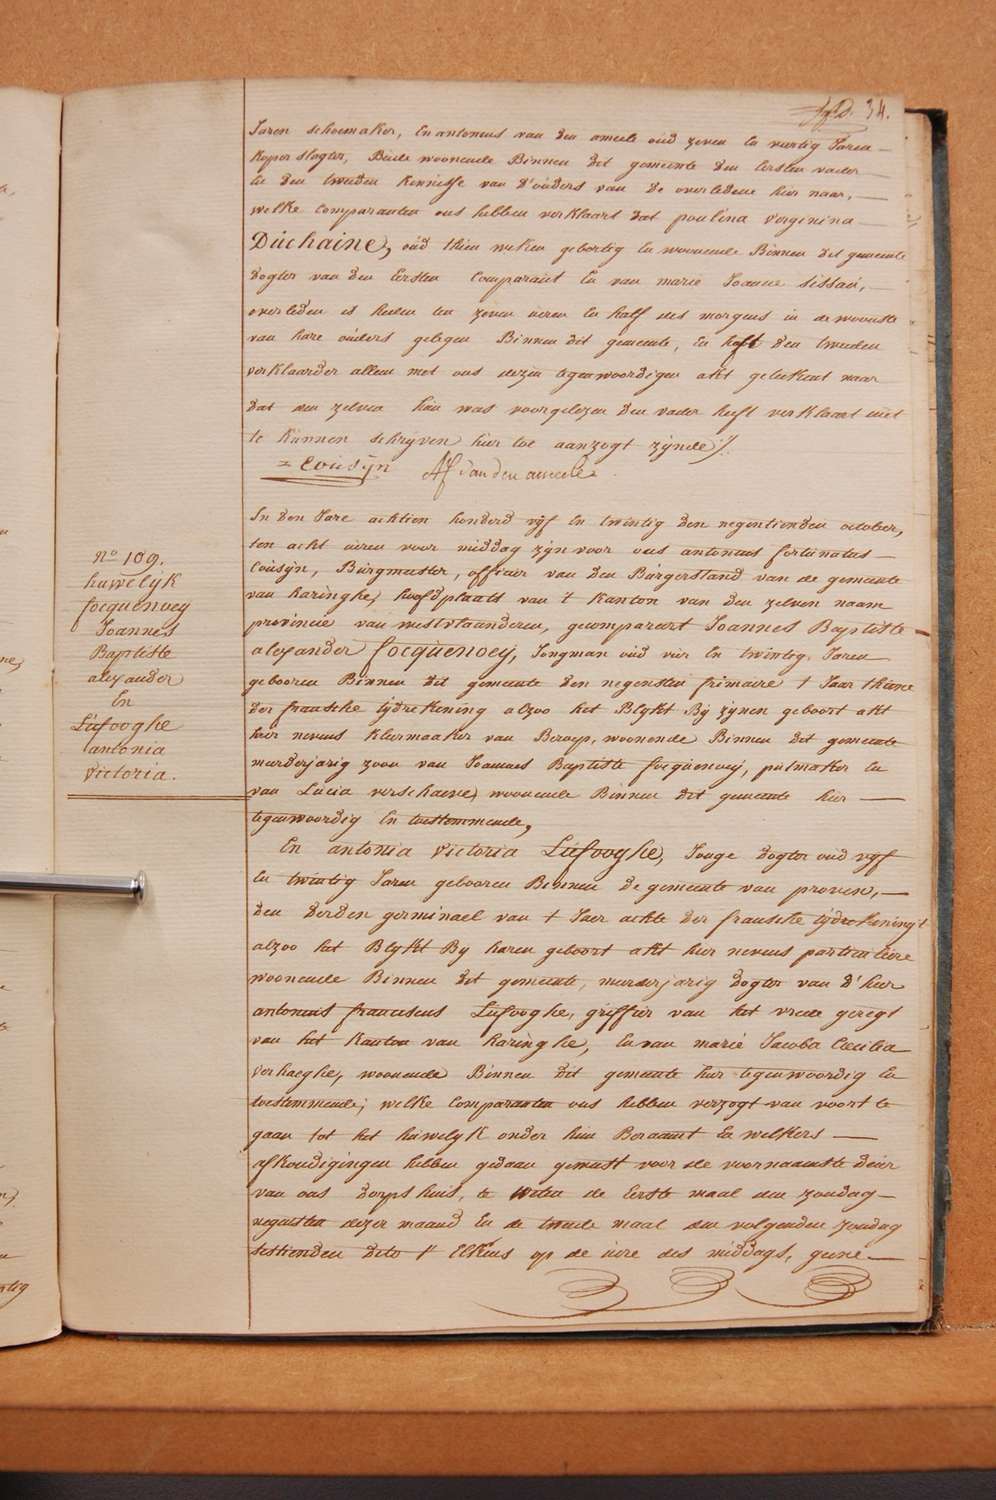 34.
Jaren schoemaker, En antonius van den ameele oud zeven En veertig Jaren
koperslegter, Beide woonende Binnen dit gemeente den Eersten vader
En den tweeden kennisse van d'ouders van de overledene hier naar,
welke Comparanten ons hebben verklaart dat paulina verginina
Duchaine, oud thien weken gebortig En woonende Binnen dit gemeente
Dogter van den Eersten Comparant En van marie Joanne
overleden is heden ten zeven uren En half des morgens in de wooninste
van hare ouders gelegen Binnen dit gemeente, En heft den tweeden
verklaarder alleen met ons dezen tegenwoordigen akt geteekent naar
dat den zelven hun was voorgelezen den vader heeft verklaart niet
te kunnen schryven hier toe aanzogt zynde /.
Cousyn AF vanden ameele
N° 109.
huwelyk
focquenoey
Joannes
Baptiste
alexander
En
Lefooghe
antonia
victoria.
In den Jare achtien honderd vyf En twintig den negentienden october,
ten acht uren voor middag zyn voor ons antonius fortunatus
Cousyn, Burgmeester, officier van den Burgerstand van de gemeente
van haringhe, hoofdplaats van 't kanton van den zelven naam
provincie van westvlaanderen, gecompareert Joannes Baptiste
alexander focquenoey, Jongman oud vier En twintig Jaren
gebooren Binnen dit gemeente den negensten frimaire t Jaar thiene
der fransche tydrekening alzoo het Blykt By zynen geboort akt
hier nevens kleermaaker van Beroep, woonende Binnen dit gemeente
meerderjarig zoon van Joannes Baptiste focquenoey, pulmaker En
van Lucia verschaeve, woonende Binnen dit gemeente hier
tegenwoordig En toestemmende,
En antonia victoria Lefooghe, Jonge dogter oud vyf
En twintig Jaren gebooren Binnen de gemeente van proven,
den derden germinael van t Jaer achte der fransche tydrekening
alzoo het Blykt By haren geboort akt hier nevens particuliere
woonende Binnen dit gemeente, meerderjarig dogter van d'heer
antonius franciscus Lefooghe, griffier van het vrede geregt
van het kanton van haringhe, En van marie Jacoba Cecilia
verhaeghe, woonende Binnen dit gemeente hier tegenwoordig En
toestemmende; welke Comparanten ons hebben verzogt van voort te
gaan tot het huwelyk onder hun Beraamt En welkers
afkondigingen hebben gedaan gemaakt voor de voornaamste deur
van ons dorpshuis, te weten de Eerste maal den zondag
negensten dezer maand En de tweede maal den volgenden zondag
sestienden dito t' Elkens op de ure des middags, geene